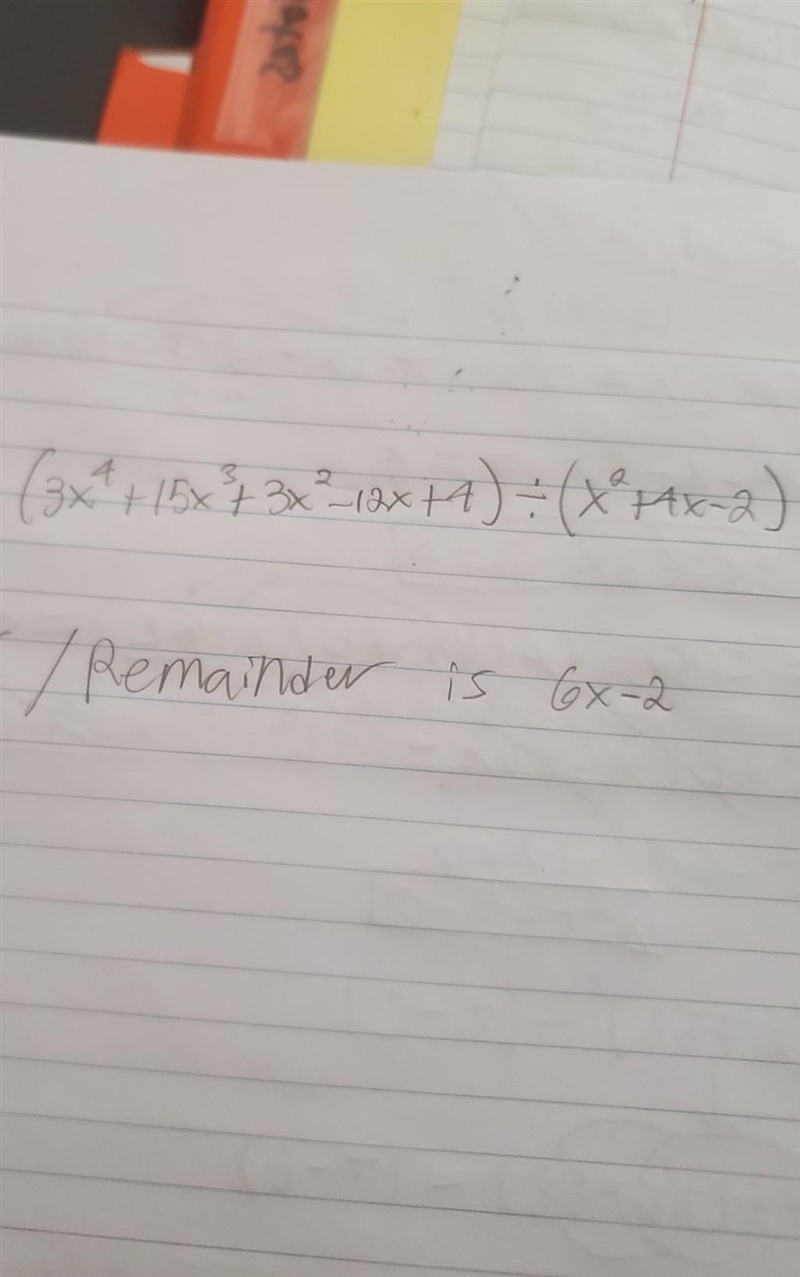 (3x⁴+15x³+3x²-12x+4)÷(x²+4x-2)
/Remainder is 6x-2